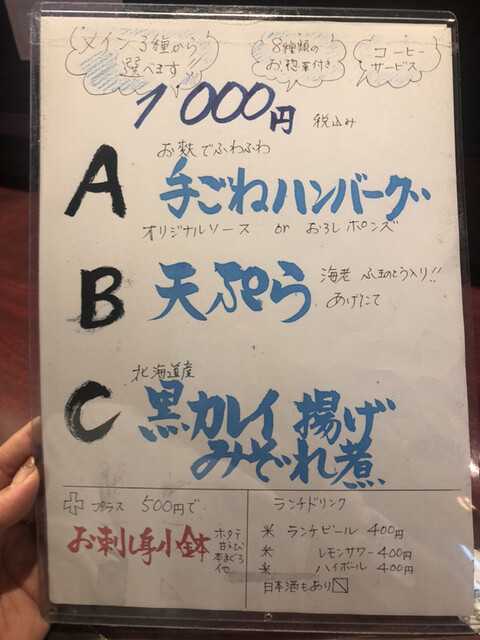 メイン3種から
選べます!!
8種類の
お惣菜付き
コーヒー
サービス
1000円 税込み
お麩でふわふわ
A 手ごねハンバーグ
オリジナルソース or おろしポンズ
B 天ぷら 海老 ふきのとう入り!!
あげたて
北海道産
C 黒カレイ 揚げ
みぞれ煮
プラス 500円で
お刺し身小鉢
ホタテ
甘えび
本まぐろ
他
ランチドリンク
※ ランチビール 400円
※ レモンサワー 400円
※ ハイボール 400円
日本酒もあり〼